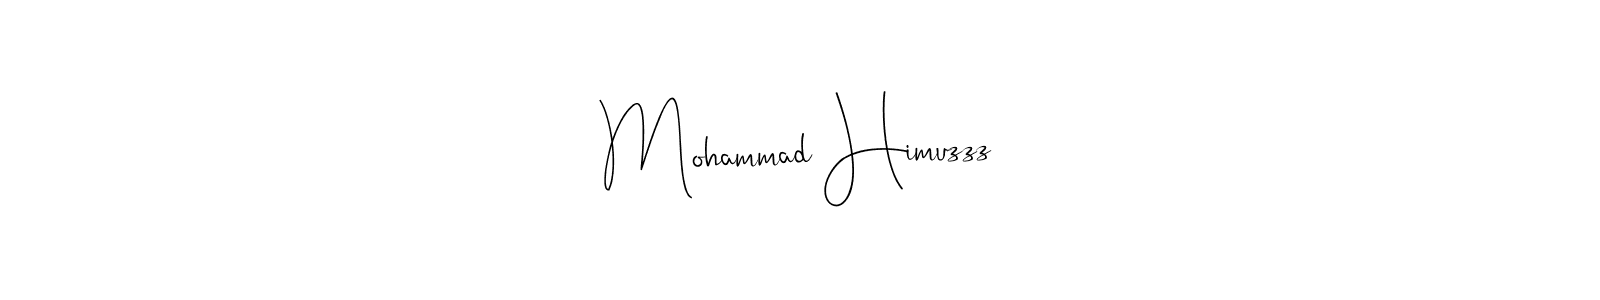 Mohammad Himuzzz